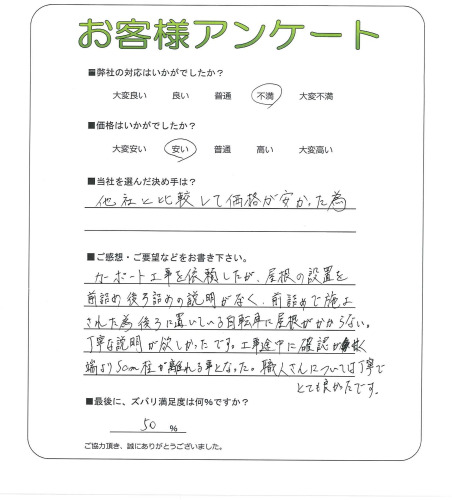 お客様アンケート
■弊社の対応はいかがでしたか？
大変良い　良い　普通　不満　大変不満
■価格はいかがでしたか？
大変安い　安い　普通　高い　大変高い
■当社を選んだ決め手は？
他社と比較して価格が安かった為
■ご感想・ご要望などをお書き下さい。
カーポート工事を依頼したが、屋根の設置を
前詰め後ろ詰めの説明がなく、前詰めで施工
された為後ろに置いている自転車に屋根がかからない。
丁寧な説明が欲しかったです。工事途中に確認が無く
端より50cm柱が離れる事となった。職人さんについては丁寧で
とても良かったです。
■最後に、ズバリ満足度は何%ですか？
50 %
ご協力頂き、誠にありがとうございました。